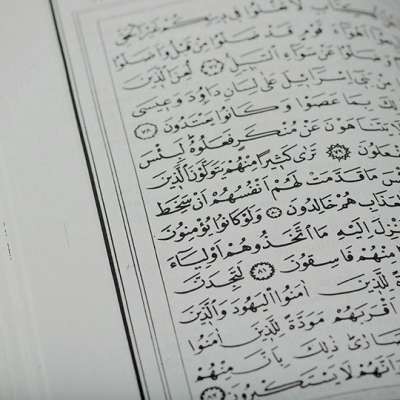 لَا تَغْلُوا فِي دِينِكُمْ غَيْرَ الْحَقِّ
أَهْوَاءَ قَوْمٍ قَدْ ضَلُّوا مِنْ قَبْلُ وَأَضَلُّوا
وَضَلُّوا عَنْ سَوَاءِ السَّبِيلِ ﴿٧٧﴾ لُعِنَ الَّذِينَ
مِنْ بَنِي إِسْرَائِيلَ عَلَى لِسَانِ دَاوُدَ وَعِيسَى
بِمَا عَصَوْا وَكَانُوا يَعْتَدُونَ ﴿٧٨﴾
لَا يَتَنَاهَوْنَ عَنْ مُنْكَرٍ فَعَلُوهُ لَبِئْسَ
﴿٧٩﴾ تَرَى كَثِيرًا مِنْهُمْ يَتَوَلَّوْنَ الَّذِينَ
مَا قَدَّمَتْ لَهُمْ أَنْفُسُهُمْ أَنْ سَخِطَ
الْعَذَابِ هُمْ خَالِدُونَ ﴿٨٠﴾ وَلَوْ كَانُوا يُؤْمِنُونَ
أُنْزِلَ إِلَيْهِ مَا اتَّخَذُوهُمْ أَوْلِيَاءَ
مِنْهُمْ فَاسِقُونَ ﴿٨١﴾ لَتَجِدَنَّ
لِلَّذِينَ آمَنُوا الْيَهُودَ وَالَّذِينَ
أَقْرَبَهُمْ مَوَدَّةً لِلَّذِينَ آمَنُوا
ذَلِكَ بِأَنَّ مِنْهُمْ
وَأَنَّهُمْ لَا يَسْتَكْبِرُونَ ﴿٨٢﴾